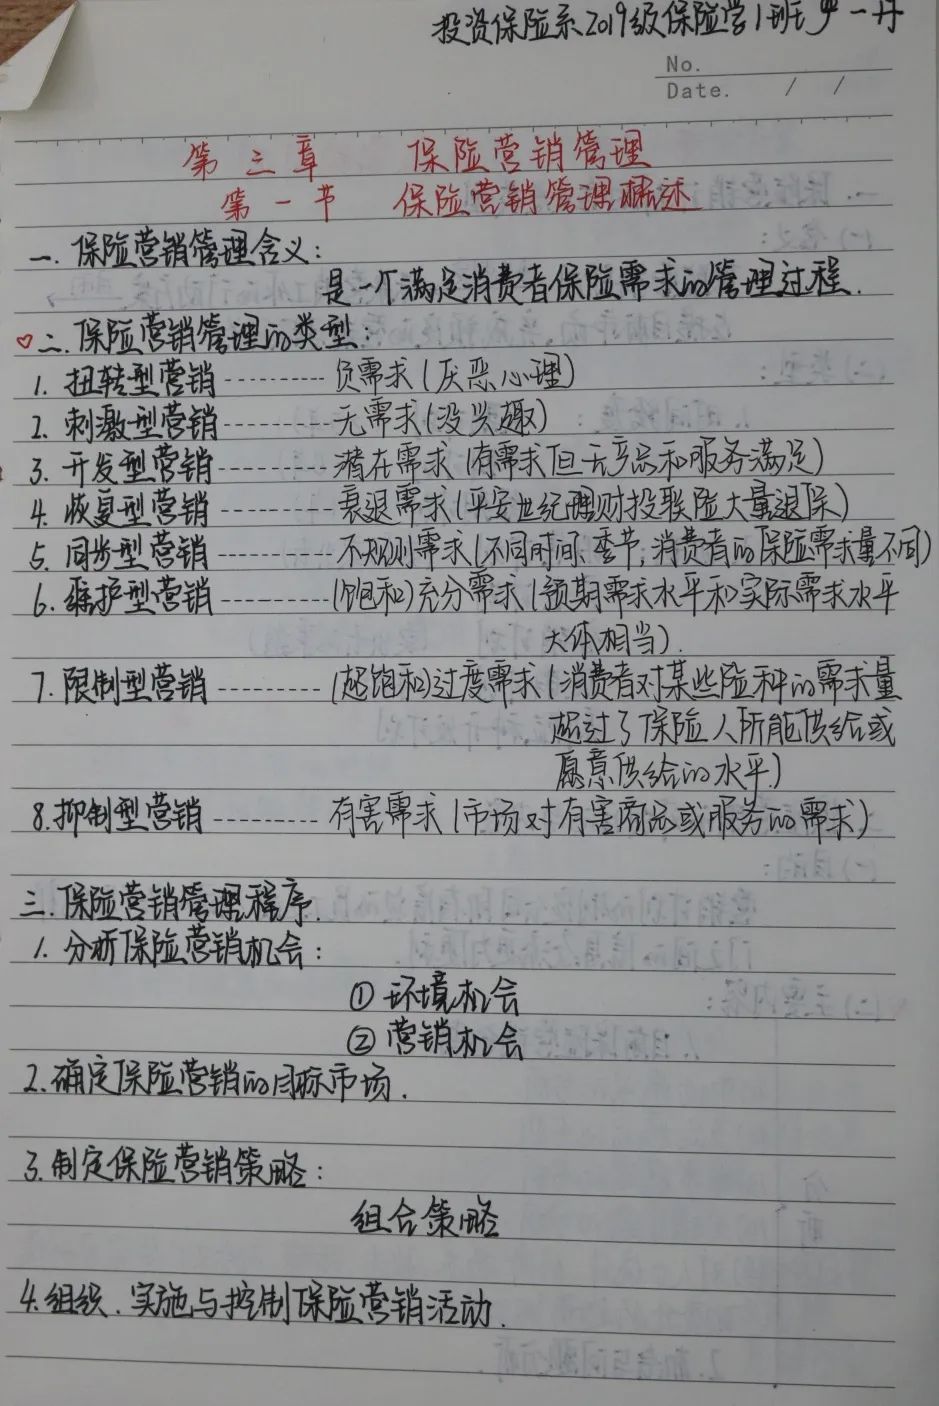 投资保险系2019级保险学1班罗一丹
No.
Date. / /
第三章 保险营销管理
第一节 保险营销管理概述
一. 保险营销管理含义:
是一个满足消费者保险需求的管理过程.
♡二. 保险营销管理的类型:
1. 扭转型营销 ---------- 负需求(厌恶心理)
2. 刺激型营销 ---------- 无需求(没兴趣)
3. 开发型营销 ---------- 潜在需求(有需求但无产品和服务满足)
4. 恢复型营销 ---------- 衰退需求(平安世纪理财投联险大量退保)
5. 同步型营销 ---------- 不规则需求(不同时间、季节,消费者的保险需求量不同)
6. 维护型营销 ---------- (饱和)充分需求(预期需求水平和实际需求水平
大体相当).
7. 限制型营销 ---------- (超饱和)过度需求(消费者对某些险种的需求量
超过了保险人所能供给或
愿意供给的水平)
8. 抑制型营销 ---------- 有害需求(市场对有害商品或服务的需求)
三. 保险营销管理程序.
1. 分析保险营销机会:
① 环境机会
② 营销机会
2. 确定保险营销的目标市场.
3. 制定保险营销策略:
组合策略
4. 组织、实施与控制保险营销活动.